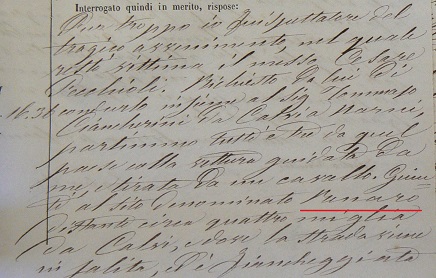 Interrogato quindi in merito, rispose:
Pur troppo io fui spettatore del
tragico avvenimento, nel quale
restò vittima il messo Cesare
Richiesto da lui di
condurlo insieme al Sig Tommaso
da Calvi a Narni,
partimmo tutti e tre da quel
paese colla vettura guidata da
me, e tirata da un cavallo. Giun-
ti al sito denominato Vanaro
distante circa quattro miglia
da Calvi, e dove la strada viene
in salita, ed è fiancheggiata